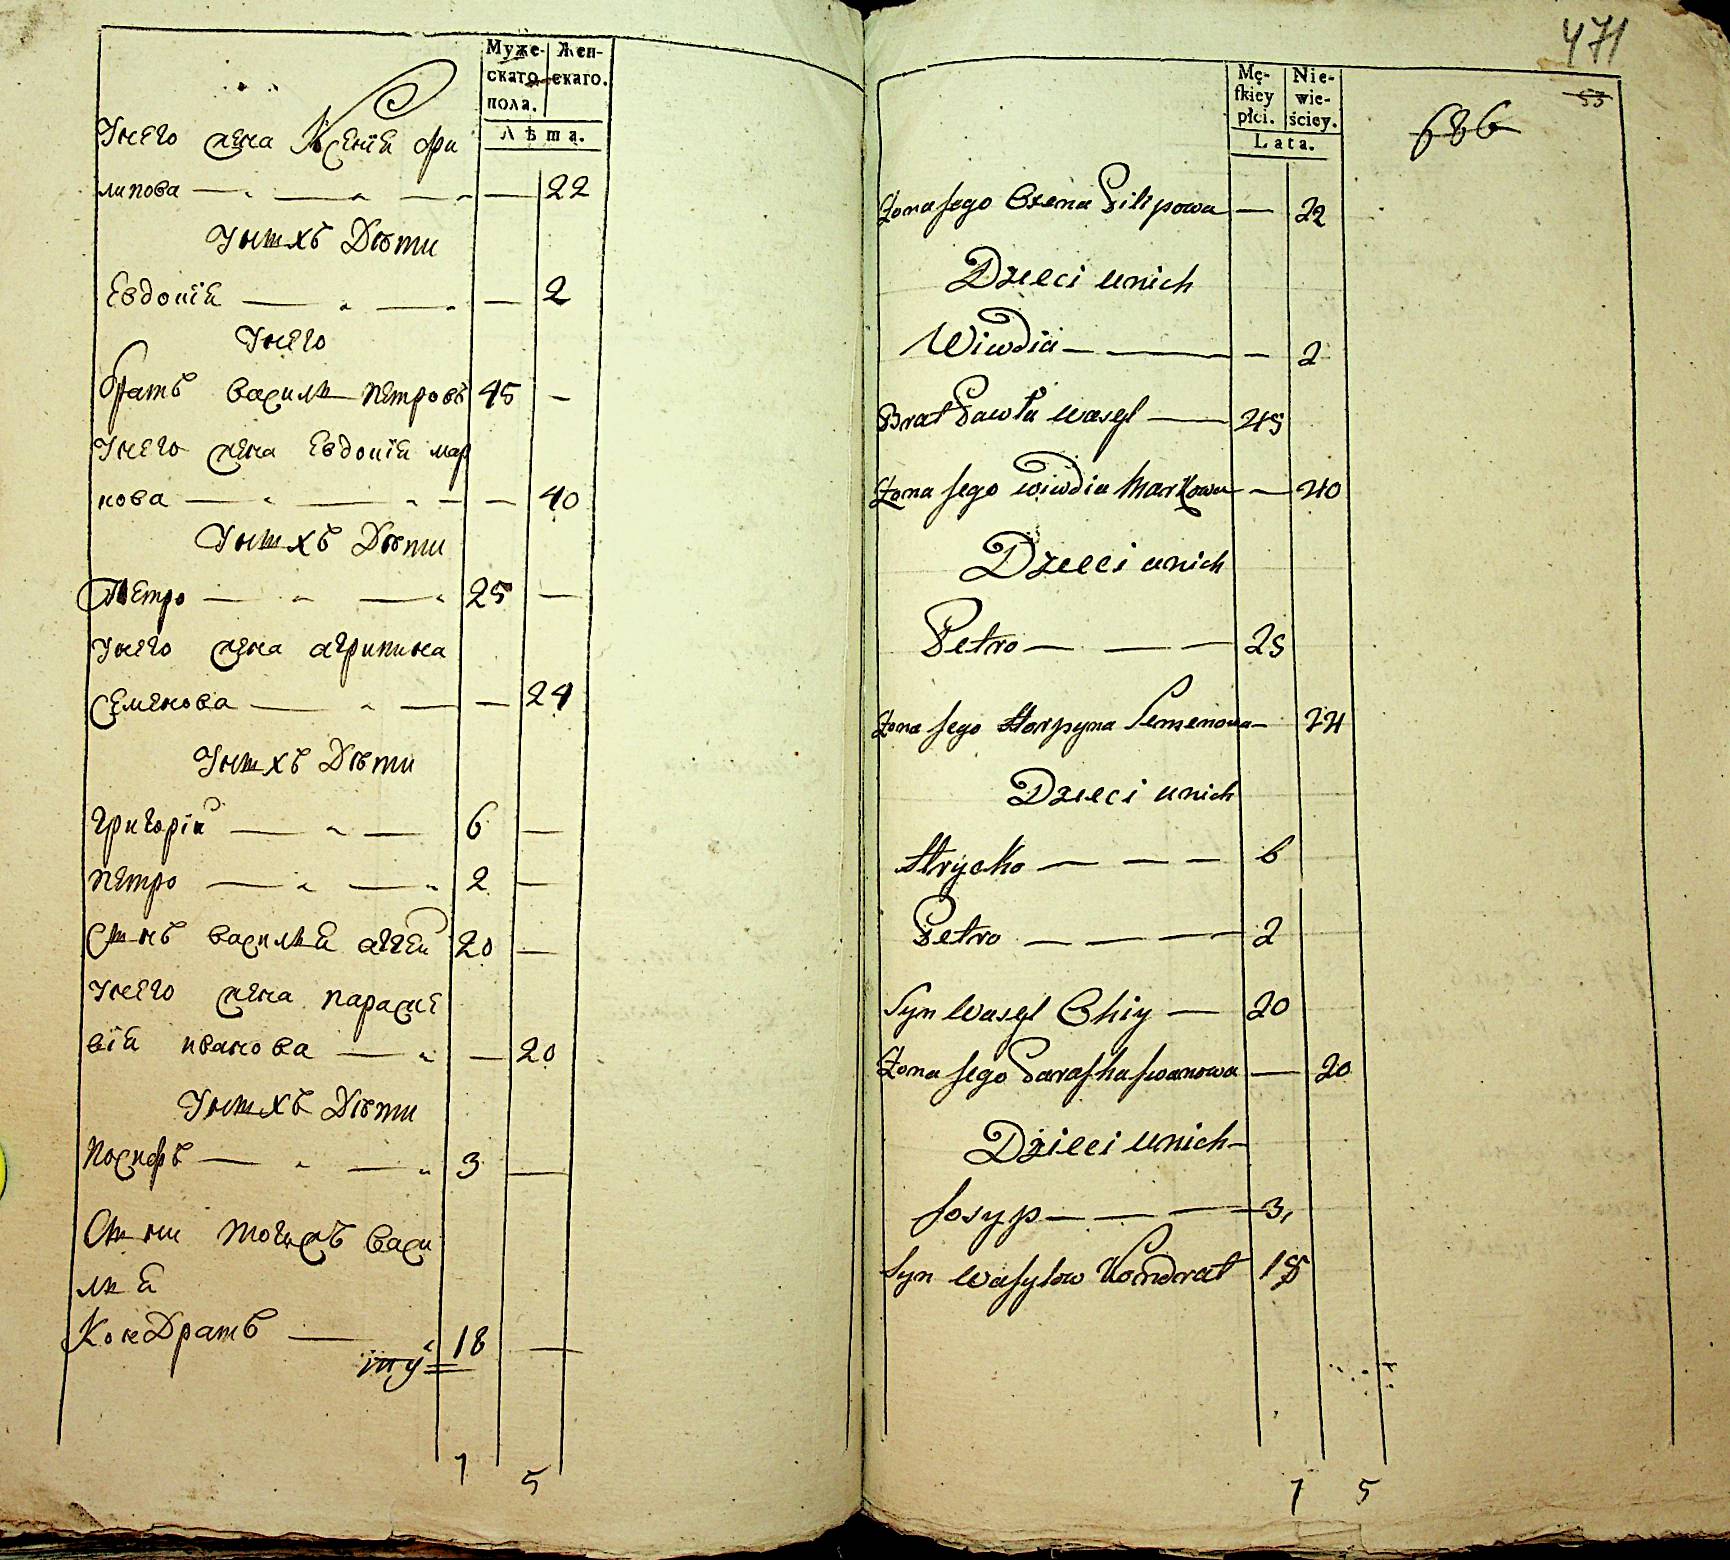 Муже- Жен-
скаго скаго.
пола.
Лѣта.
Унего жена Ксенїя фи
липова — — — — 22
Унихъ Дѣти
Евдокїя — — — 2
Унего
братъ василь Петровъ 45 —
Унего жена Евдокїя мар
кова — — — — 40
Унихъ Дѣти
Петро — — 25 —
Унего жена агрипина
Семенова — — — 24
Унихъ Дѣти
григорїй — — 6 —
Петро — — 2 —
Сынъ василья аггей 20 —
Унего жена параске
вїя иванова — — 20
Унихъ Дѣти
Иосифъ — — 3 —
Сыны тогожъ васи
лья
Кондратъ — 18 —
7 5
471
53
686
Mę- Nie-
ſkiey wie-
płci. ściey.
Lata.
Żona Jego Oxena Filipowa — 22
Dzieci unich
Wiwdia — — — 2
Brat Pawła Wasyl — 45
Żona Jego Wiwdia Markowa — 40
Dzieci unich
Petro — — — 25
Żona Jego Horpyna Semenowa — 24
Dzieci unich
Hrycko — — — 6
Petro — — — 2
Syn Wasyl Ohiy — 20
Żona Jego Paraska Iwanowa — 20
Dzieci unich —
Josyp — — — 3
Syn Wasylow Kondrat 18
7 5